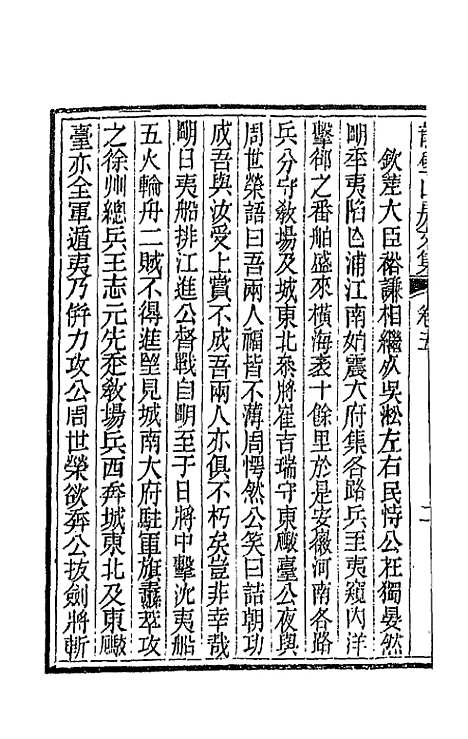 欽差大臣裕謙相繼於吳淞左右民恃公在獨晏然
明年夷陷乍浦江南始震大府集各路兵至夷窺內洋
擊卻之番舶盛來橫海袤十餘里於是安徽河南各路
兵分守敎塲及城東北叅將崔吉瑞守東礮臺公夜與
周世榮語曰吾兩人福皆不薄周愕然公笑曰詰朝功
成吾與汝受上賞不成吾兩人亦俱不朽矣豈非幸哉
明日夷船排江進公督戰自明至于日將中擊沈夷船
五火輪舟二賊不得進朢見城南大府駐軍旗纛萃攻
之徐州總兵王志元先走敎塲兵西奔城東北及東礮
臺亦全軍遁夷乃倂力攻公周世榮欲奔公拔劍將斬
卷五
二